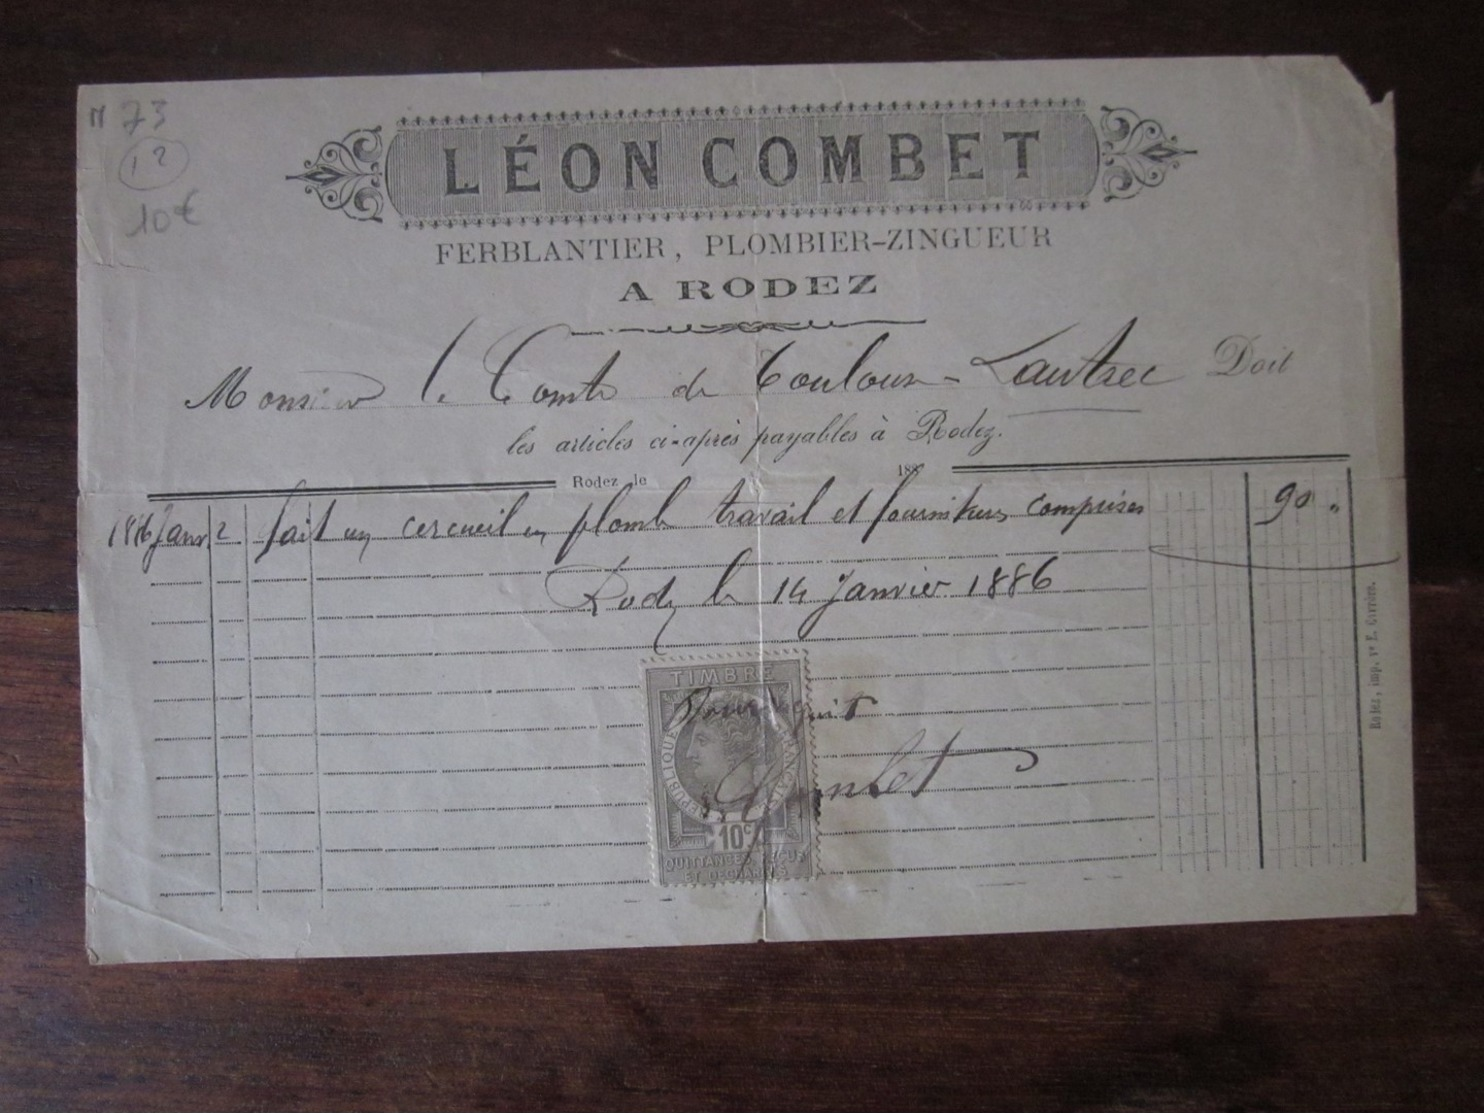 N 73
12
10€
LÉON COMBET
FERBLANTIER, PLOMBIER-ZINGUEUR
A RODEZ
Monsieur le Comte de Toulouse-Lautrec Doit
les articles ci-après payables à Rodez.
Rodez le 188
1886 Janv 2 fait un cercueil en plomb travail et fournitures comprises 90 "
Rodez le 14 Janvier 1886
TIMBRE
Pour acquit
RÉPUBLIQUE FRANÇAISE
Combet
10c
QUITTANCES, REÇUS
ET DÉCHARGES
Rodez, imp. Ve E. Carrère.